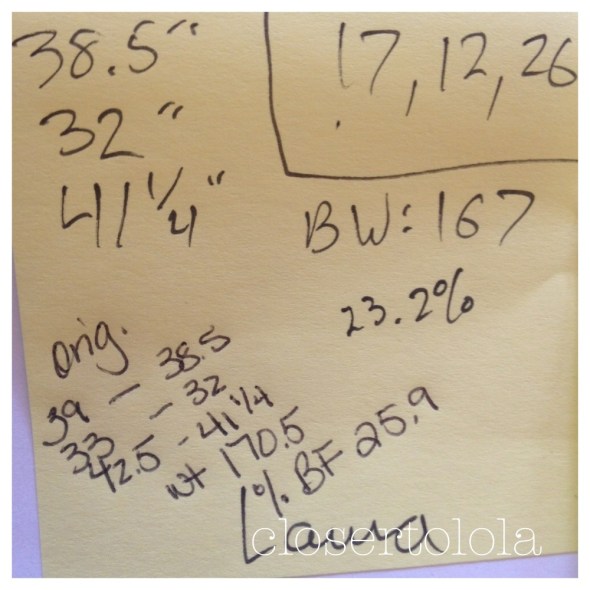 38.5"
32"
41 1/4"
17, 12, 26
BW: 167
23.2%
orig.
39 - 38.5
33 - 32
42.5 - 41 1/4
wt 170.5
% BF 25.9
Laura
closertolola